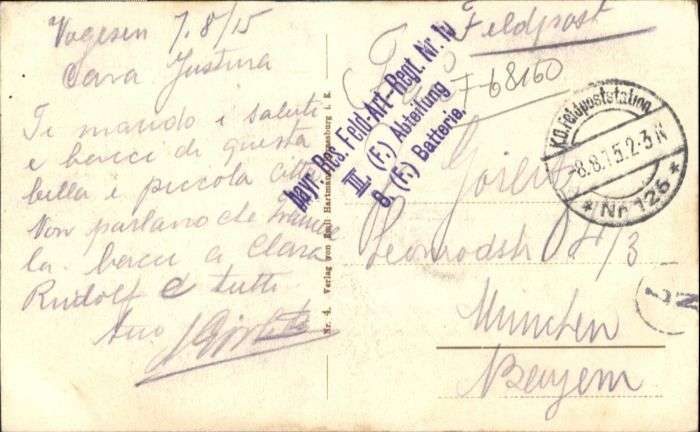 Vogesen 7.8/15
Cara Justina
Ti mando i saluti
e bacci di questa
bella e piccola citta
Non parlano che Francese
la. bacci a Clara
Rudolf e tutti
tuo
Nr. 4. Verlag von Emil Hartmann, Strassburg i. E.
Feldpost
bayr. Res. Feld-Art-Regt. Nr.
III. (F.) Abteilung
8. (F.) Batterie.
F 68160
K.D. Feldpoststation
8.8.15.2-3 N
* Nr. 126 *
München
Bayern